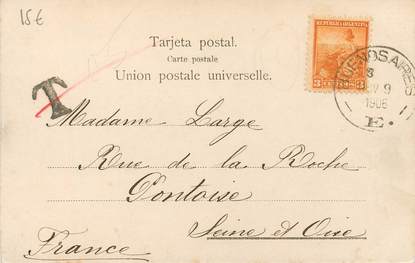 15€
Tarjeta postal.
Carte postale
Union postale universelle.
REPUBLICA ARGENTINA
3 3
BUENOS AIRES
9
1906
E.
T
Madame Large
Rue de la Roche
Pontoise
Seine et Oise
France